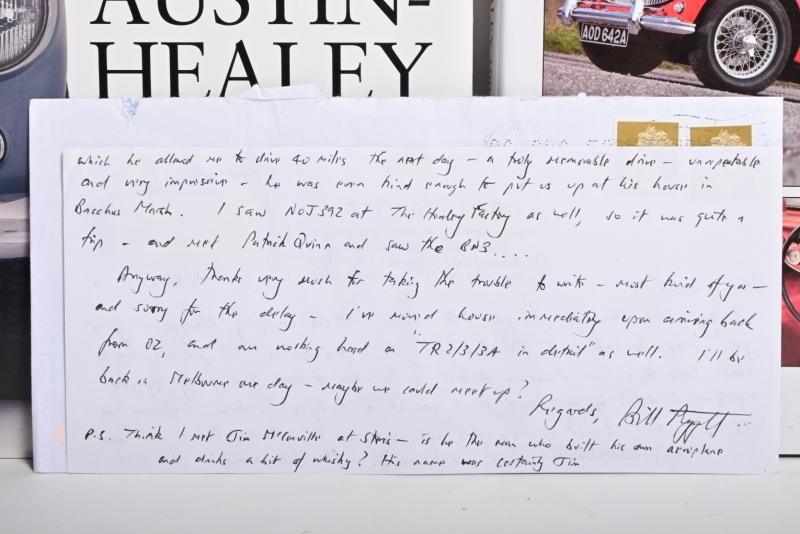 AUSTIN-
HEALEY
AOD 642A
which he allowed me to drive 40 miles the next day - a truly memorable drive - unrepeatable
and very impressive - he was even kind enough to put us up at his house in
Bacchus Marsh. I saw NOJ392 at The Healey Factory as well, so it was quite a
trip - and met Patrick Quinn and saw the BN3....
Anyway, thanks very much for taking the trouble to write - most kind of you -
and sorry for the delay - I've moved house immediately upon arriving back
from OZ, and am working hard on "TR2/3/3A in detail" as well. I'll be
back in Melbourne one day - maybe we could meet up?
Regards, Bill
P.S. Think I met Jim at - is he the man who built his own aeroplane
and drinks a bit of whisky? His name was certainly Jim